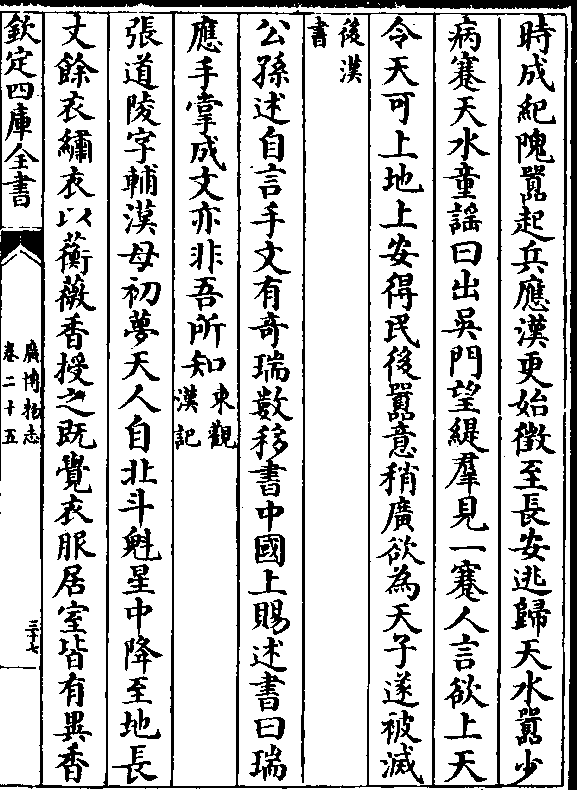 時成紀隗囂起兵應漢更始徵至長安逃歸天水囂少
病蹇天水童謠曰出吳門望緹羣見一蹇人言欲上天
令天可上地上安得民後囂意稍廣欲為天子遂被滅
後漢
書
公孫述自言手文有奇瑞數移書中國上賜述書曰瑞
應手掌成文亦非吾所知東觀
漢記
張道陵字輔漢母初夢天人自北斗魁星中降至地長
丈餘衣繡衣以蘅薇香授之既覺衣服居室皆有異香
欽定四庫全書
廣博物志
卷二十五
三十七